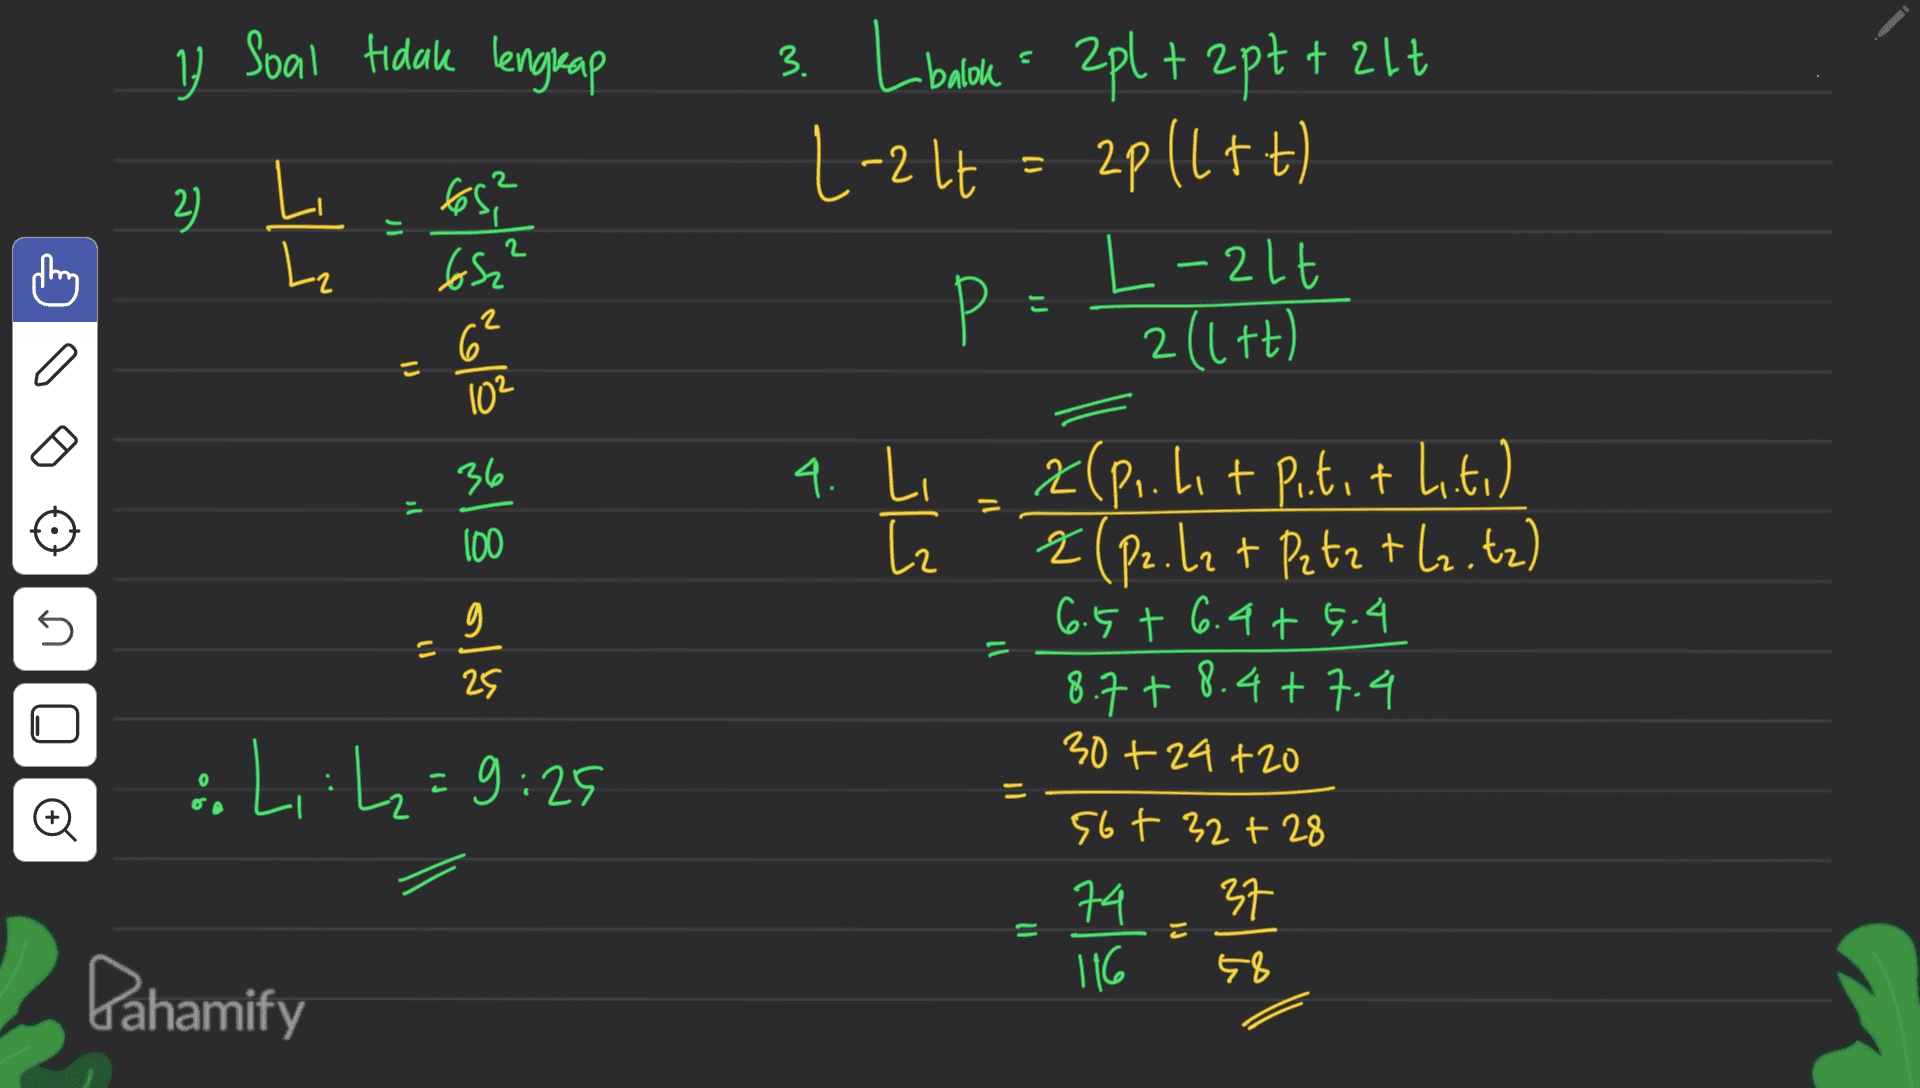 1) Soal tidak lengkap
2) L₁/L₂ = 6s₁²/6s₂²
= 6²/10²
= 36/100
= 9/25
∴ L₁ : L₂ = 9 : 25
3. L balok = 2pl + 2pt + 2lt
L - 2lt = 2p(l + t)
p = L - 2lt / 2(l + t)
4. L₁/L₂ = 2(p₁.l₁ + p₁.t₁ + l₁.t₁) / 2(p₂.l₂ + p₂t₂ + l₂.t₂)
= 6.5 + 6.4 + 5.4 / 8.7 + 8.4 + 7.4
= 30 + 24 + 20 / 56 + 32 + 28
= 74/116 = 37/58
Pahamify